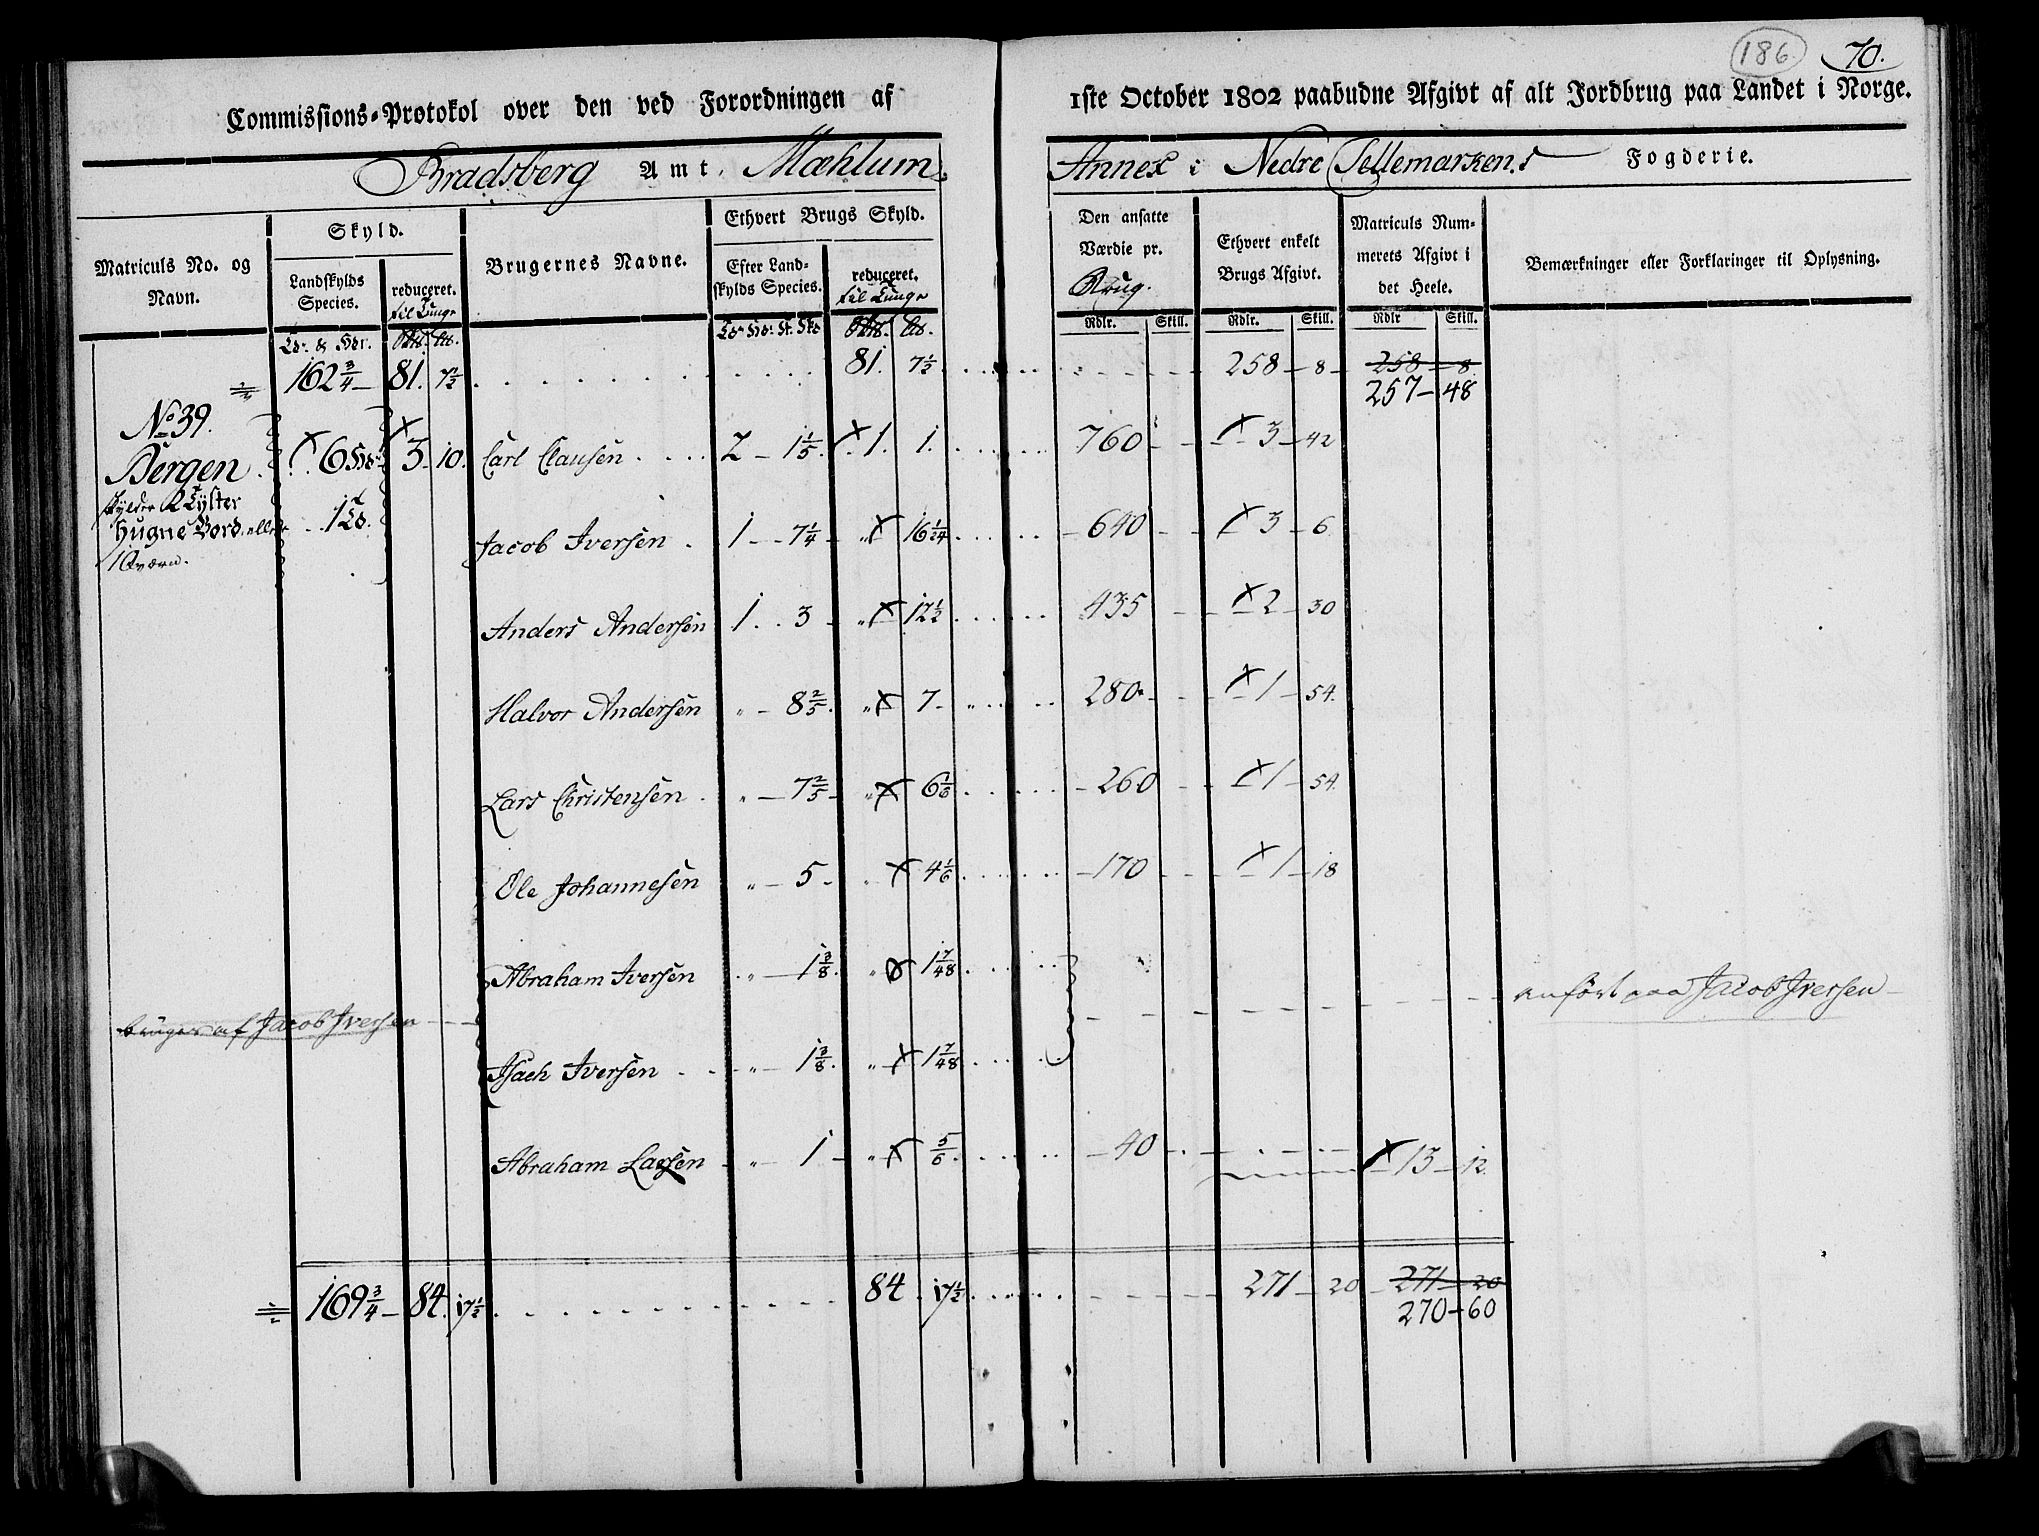 186. 70.
Commissions-Protokol over den ved Forordningen af 1ste October 1802 paabudne Afgivt af alt Jordbrug paa Landet i Norge.
Bradsberg Amt, Mæhlum Annex i Nedre Tellemarkens Fogderie.
Matriculs No. og Navn.
Skyld.
Landskylds Species.
reduceret. til Tunge
Brugernes Navne.
Ethvert Brugs Skyld.
Efter Landskylds Species.
reduceret. til Tunge
Den ansatte Værdie pr. Brug.
Ethvert enkelt Brugs Afgivt.
Matriculs Nummerets Afgivt i det Heele.
Bemærkninger eller Forklaringer til Oplysning.
Rdlr. Skill. Rdlr. Skill. Rdlr Skill.
162 3/4 81. 7 1/2 81. 7 1/2 258 8 258 8
257 48
No 39.
Bergen 6 3 10. Carl Clausen 2 1 1/5 1. 1. 760 3 42
Hugne Bord
Jacob Iversen 1 7 1/4 16 1/24 640 3 6
Anders Andersen 1 3 12 1/2 435 2 30
Halvor Andersen 8 2/5 7 280 1 54.
Lars Christensen 7 2/5 6 1/6 260 1 54.
Ole Johannesen 5 4 1/6 170 1 18
Abraham Iversen 1 3/8 1 7/48
bruges af Jacob Iversen anført paa Jacob Iversen
Isach Iversen 1 3/8 1 7/48
Abraham Lassen 1 5/6 40 13 12.
169 3/4 84. 17 1/2 84. 17 1/2 271 20 271 20
270 60